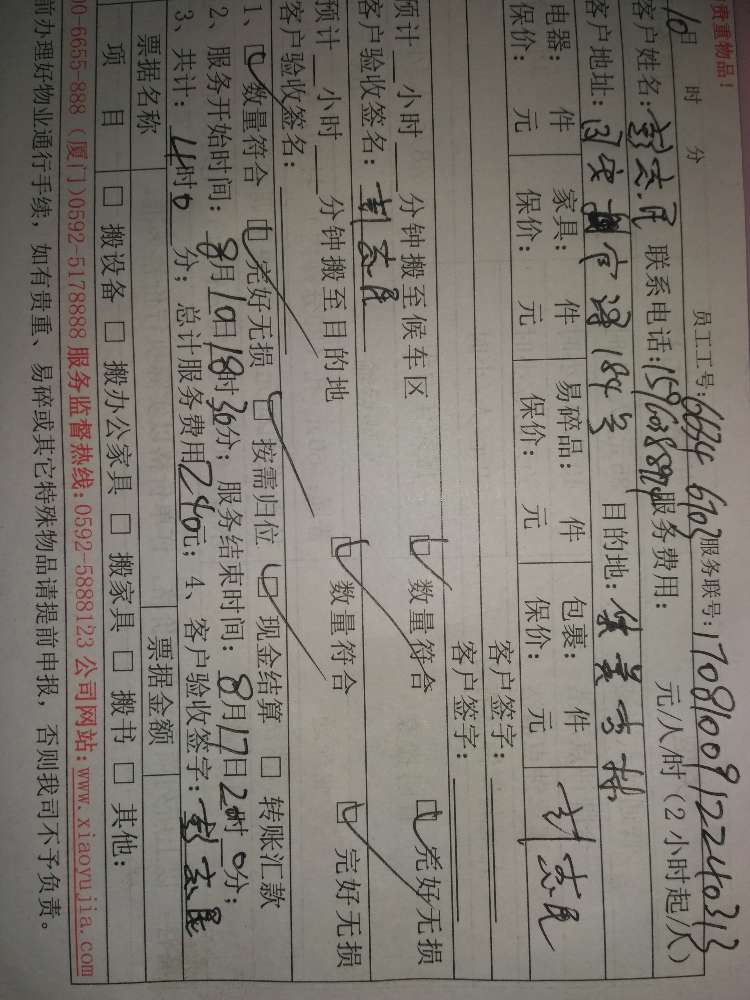 贵重物品！
10月 时 分 员工工号：6634 6703 服务联号：170810091224031
客户姓名： 联系电话： 服务费用： 元/人/时（2小时起/人）
客户地址： 184号 目的地：
电器： 件 家具： 件 易碎品： 件 包裹： 件
保价： 元 保价： 元 保价： 元 保价： 元
客户签字：
客户签字：
预计 小时 分钟搬至候车区 数量符合 完好无损
客户验收签名：
预计 小时 分钟搬至目的地 数量符合 完好无损
客户验收签名：
1、 数量符合 完好无损 按需归位 现金结算 转账汇款
2、服务开始时间：8月10日18时30分；服务结束时间：8月17日20时0分；
3、共计：4时0分；总计服务费用240元；4、客户验收签字：
票据名称 票据金额
项 目 搬设备 搬办公家具 搬家具 搬书 其他：
00-6655-888（厦门）0592-5178888 服务监督热线：0592-5888123 公司网站：www.xiaoyujia.com
前办理好物业通行手续，如有贵重、易碎或其它特殊物品请提前申报，否则我司不予负责。